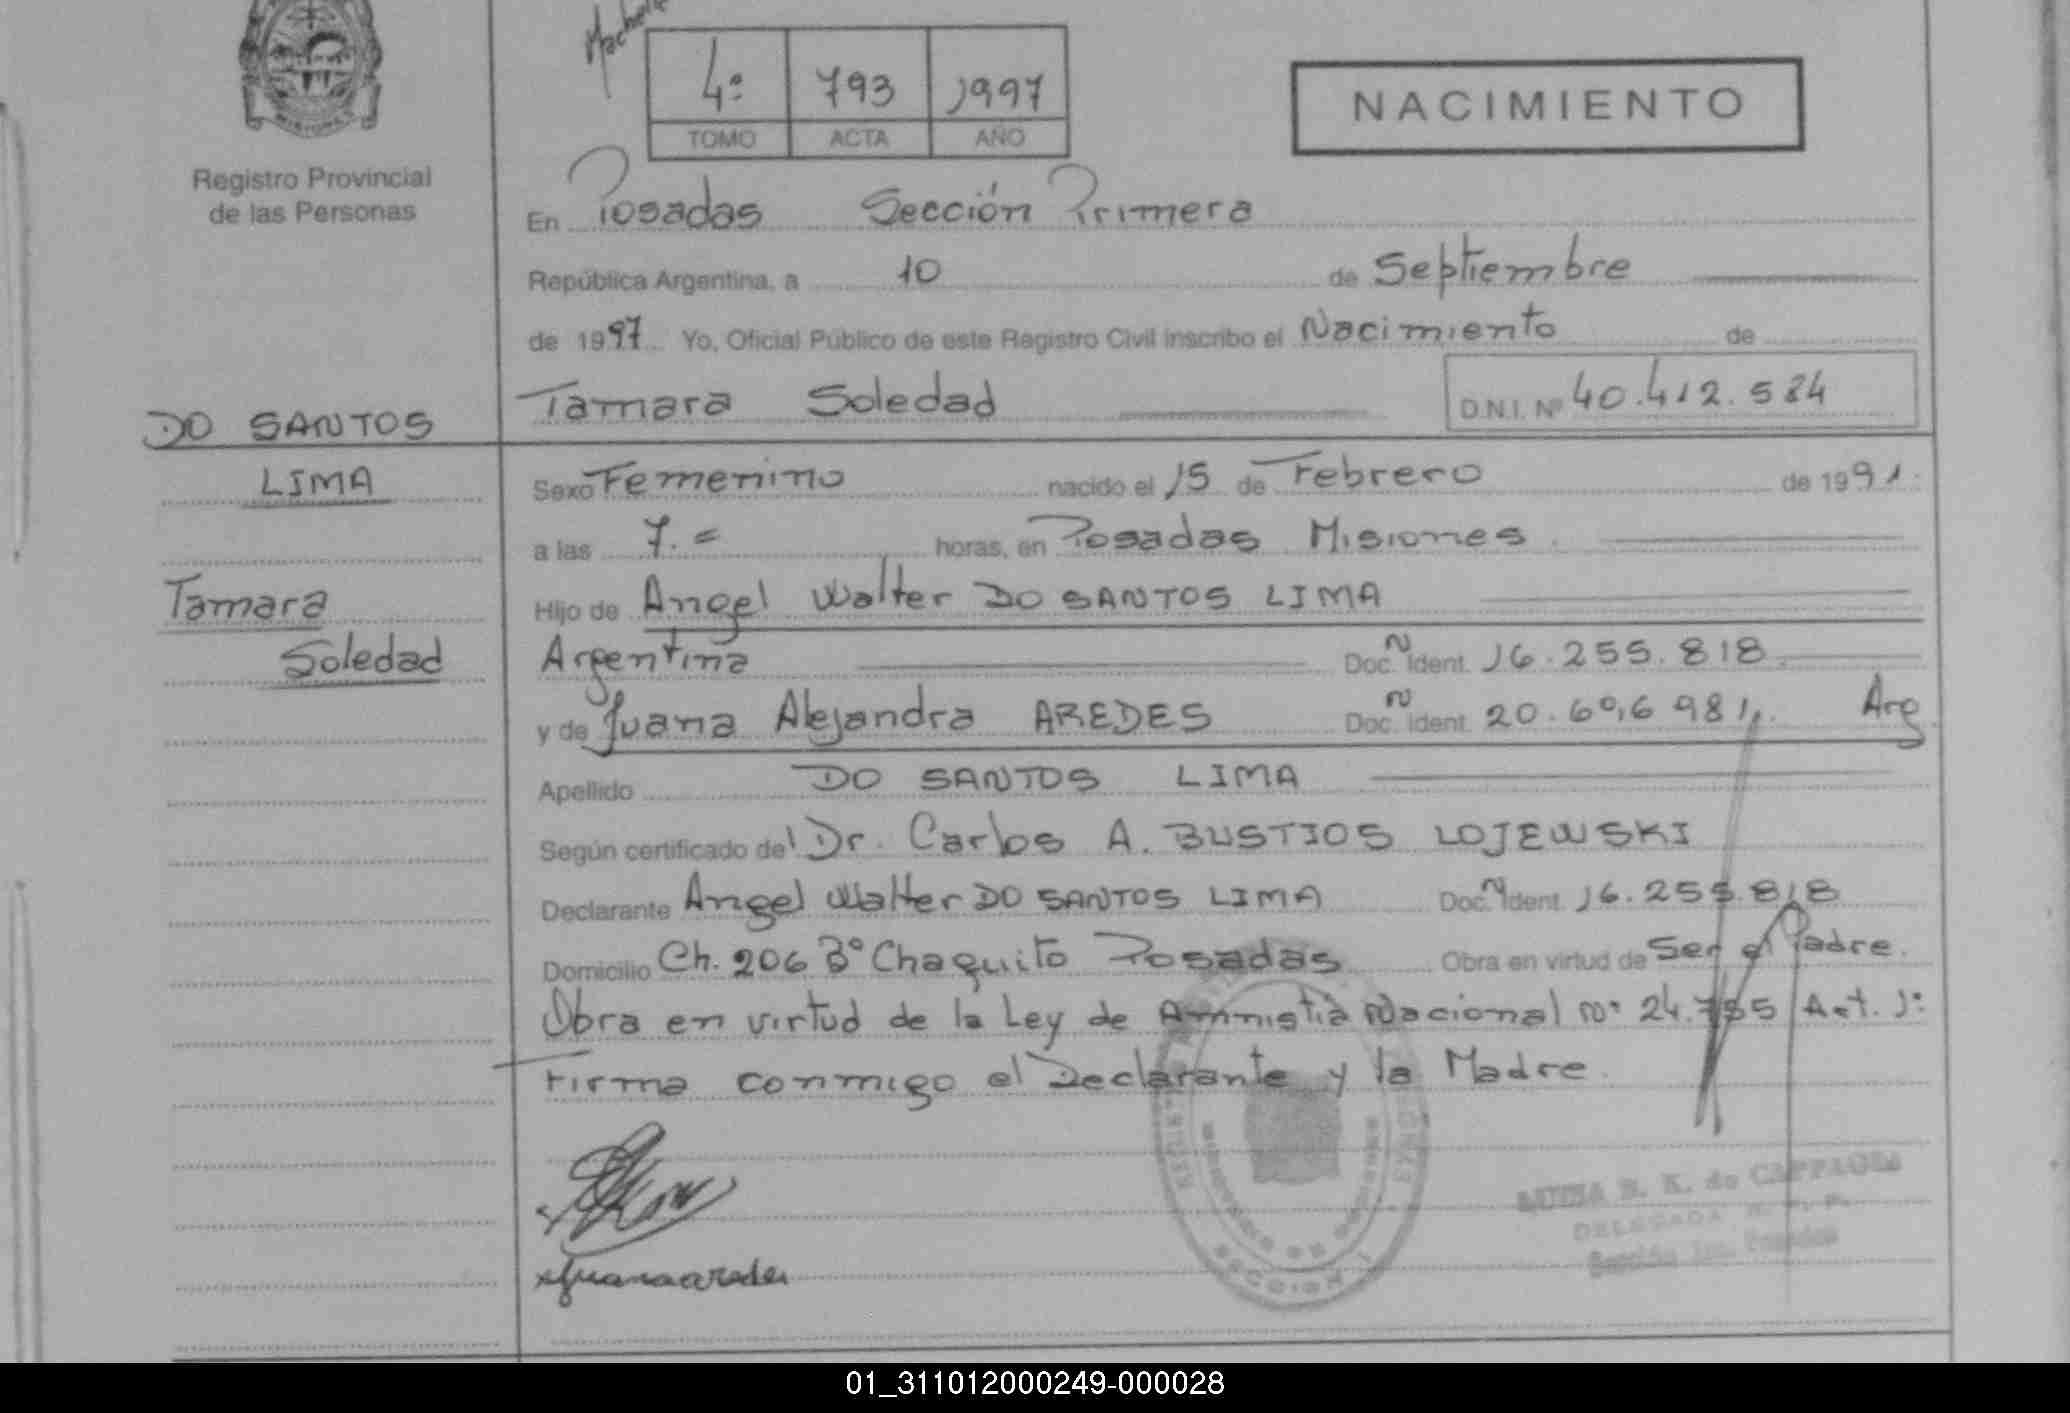 MISIONES
Registro Provincial
de las Personas
4º 793 1997
TOMO ACTA AÑO
NACIMIENTO
En Posadas Sección Primera
República Argentina, a 10 de Septiembre
de 1997 Yo, Oficial Público de este Registro Civil inscribo el Nacimiento de
Tamara Soledad D.N.I. Nº 40.412.584
DO SANTOS
LIMA
Tamara
Soledad
Sexo Femenino nacido el 15 de Febrero de 1991.
a las 7.= horas, en Posadas Misiones.
Hijo de Angel Walter DO SANTOS LIMA
Argentina Doc. N Ident. 16.255.818
y de Juana Alejandra AREDES Doc. N Ident. 20.696981,. Arg.
Apellido DO SANTOS LIMA
Según certificado del Dr. Carlos A. BUSTIOS LOJEWSKI
Declarante Angel Walter DO SANTOS LIMA Doc. N Ident. 16.255.818
Domicilio Ch. 206 Bº Chaquito Posadas Obra en virtud de Ser el Padre.
Obra en virtud de la Ley de Amnistia Nacional Nº 24.755 Art. 1º
Firma conmigo el Declarante y la Madre.
Juana aredes
SECCION 1
DELEGADA
01_311012000249-000028